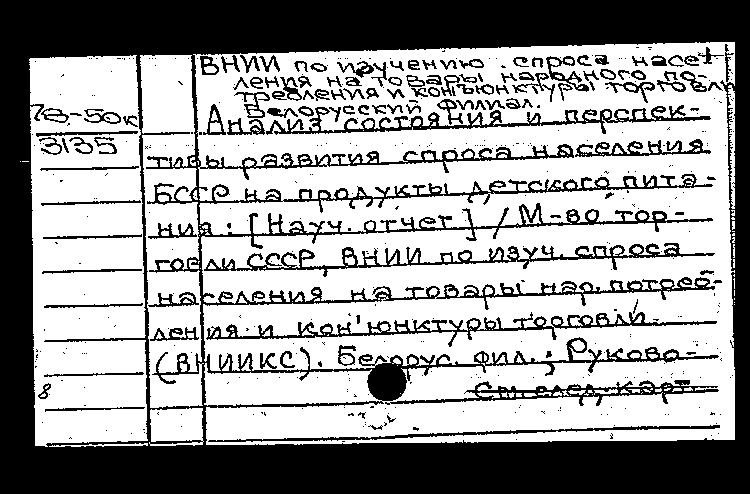 ВНИИ по изучению спроса насе-
ления на товары народного по-
требления и конъюнктуры торговли
Белорусский филиал.
78-50к
Анализ состояния и перспек-
3135
тивы развития спроса населения
БССР на продукты детского пита-
ния: [Науч. отчет] / М-во тор-
говли СССР, ВНИИ по изуч. спроса
населения на товары нар. потреб-
ления и кон'юнктуры торговли
(ВНИИКС). Белорус. фил.; Руково-
8
См. след. карт.